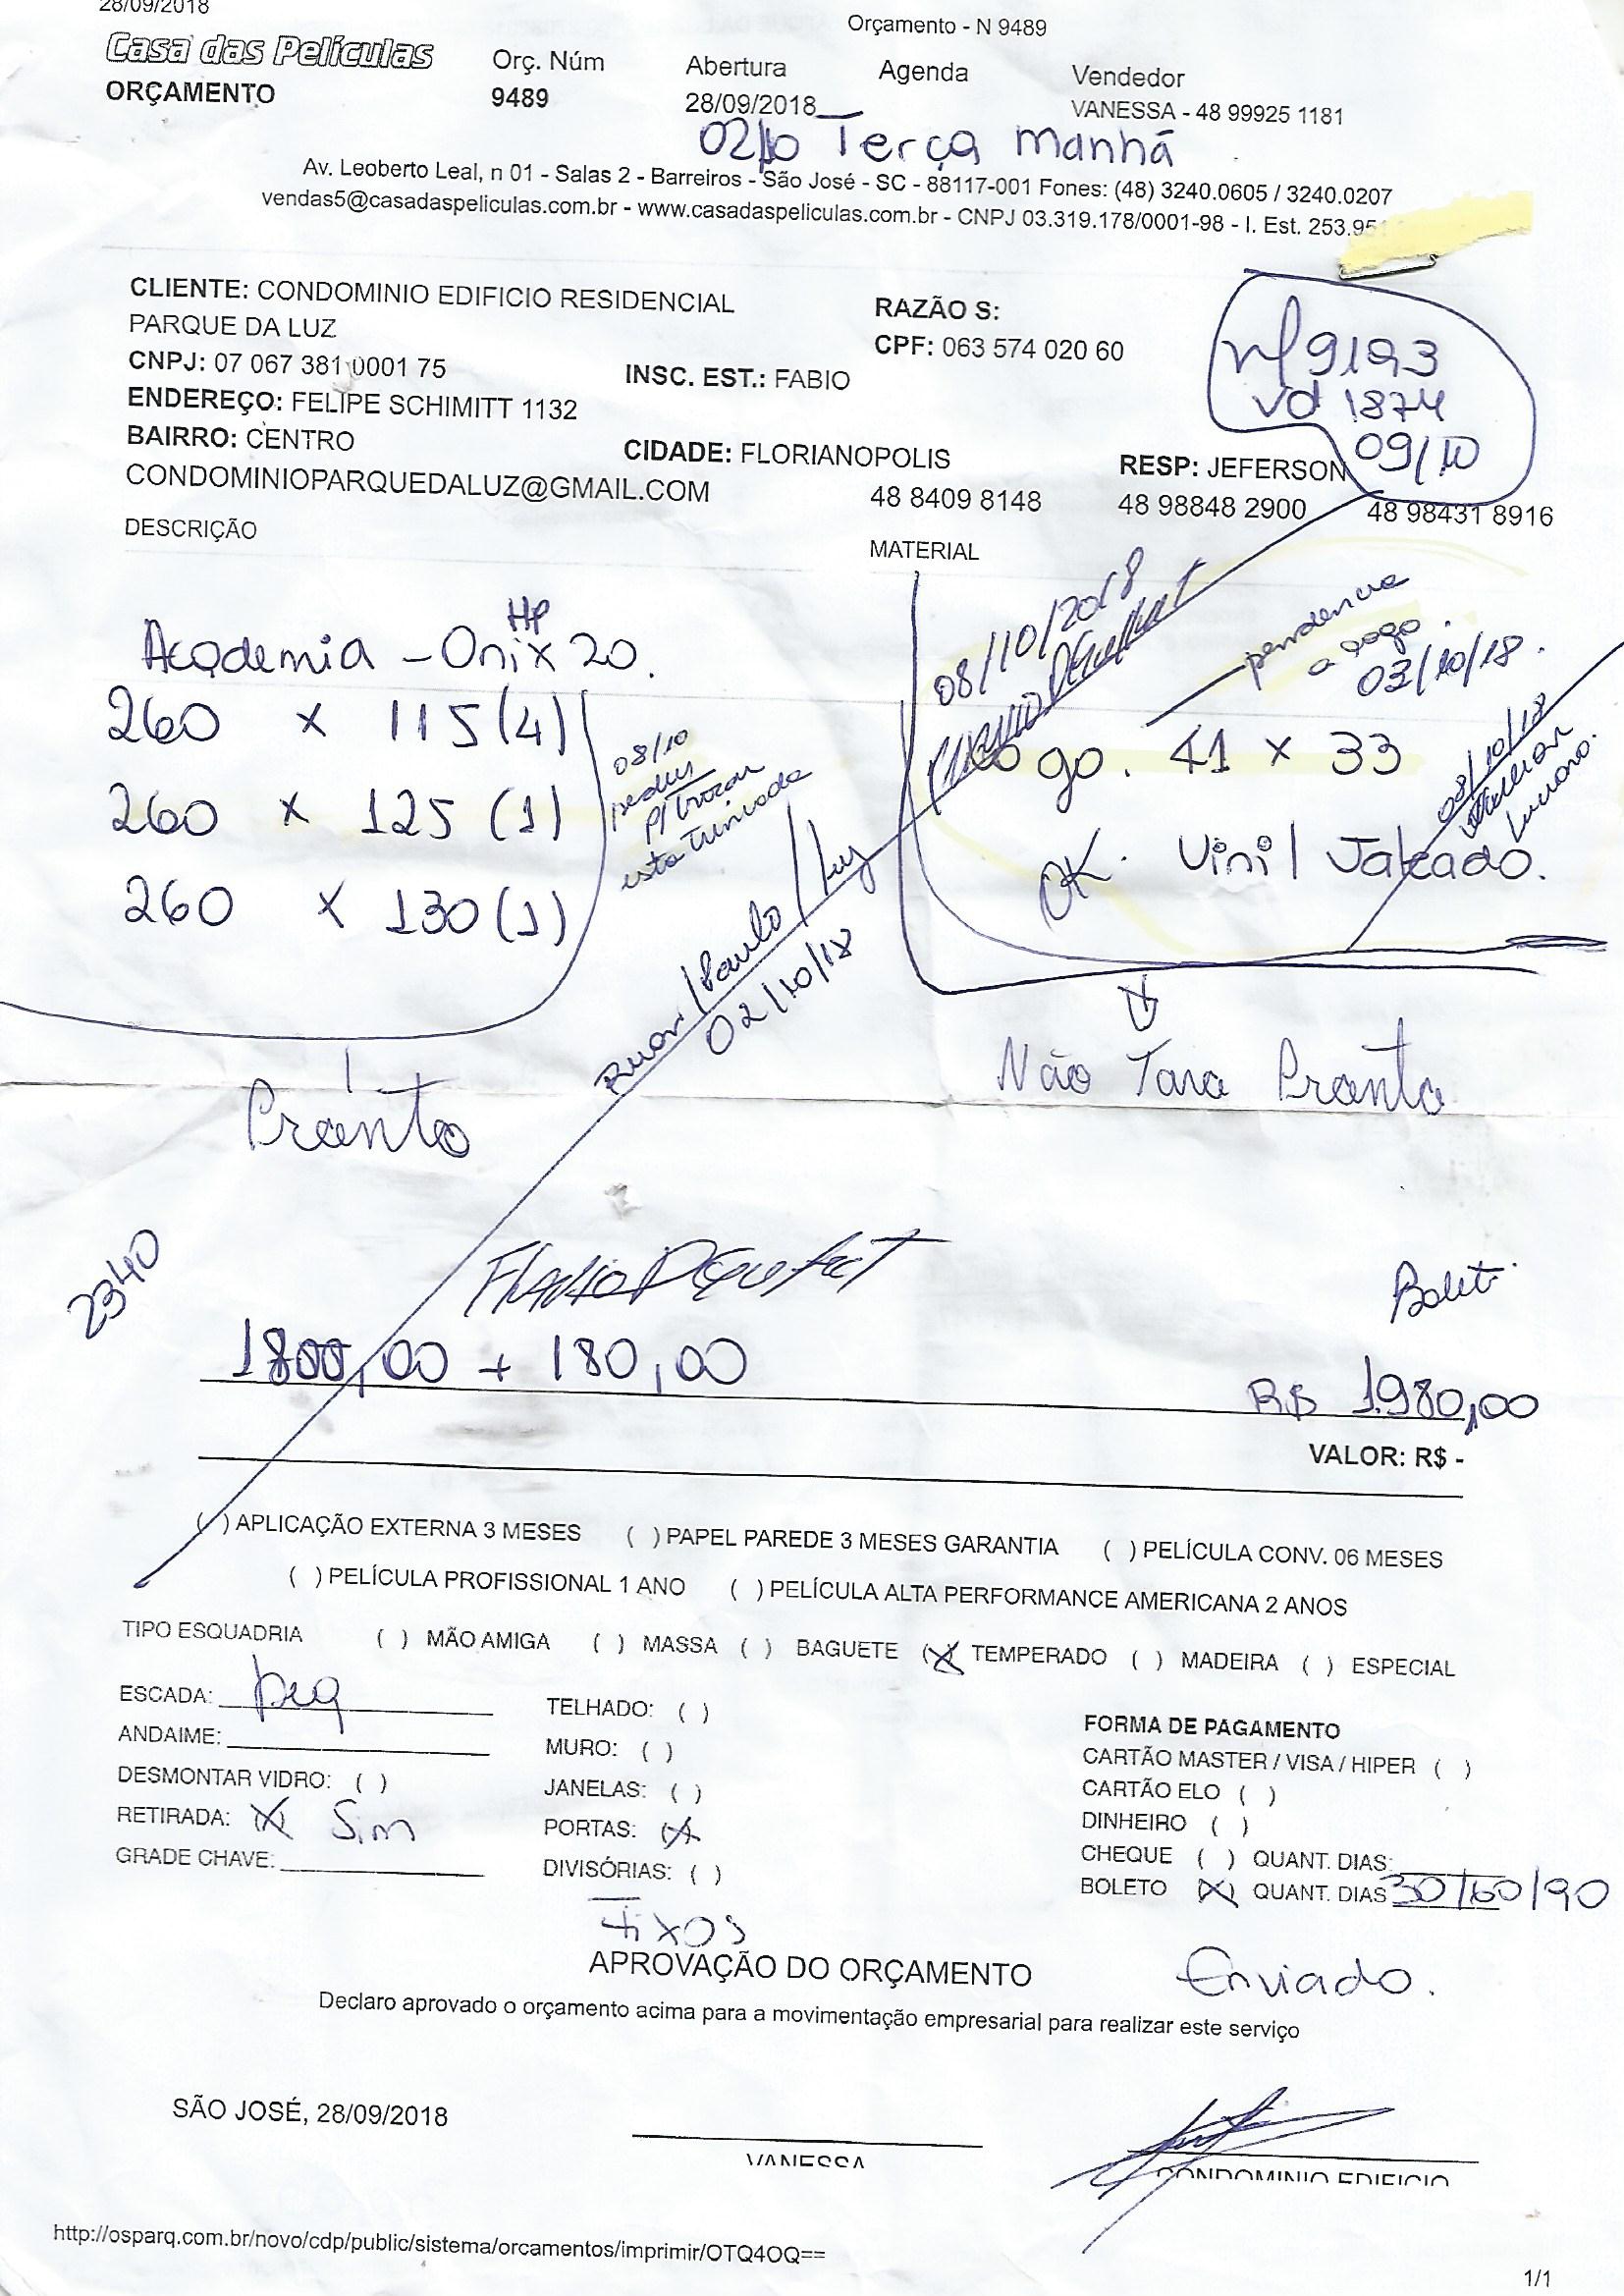 28/09/2018
Orçamento - N 9489
Casa das Películas
ORÇAMENTO
Orç. Núm
9489
Abertura
28/09/2018
Agenda
Vendedor
VANESSA - 48 99925 1181
02/10 Terça Manhã
Av. Leoberto Leal, n 01 - Salas 2 - Barreiros - São José - SC - 88117-001 Fones: (48) 3240.0605 / 3240.0207
vendas5@casadaspeliculas.com.br - www.casadaspeliculas.com.br - CNPJ 03.319.178/0001-98 - I. Est. 253.95
CLIENTE: CONDOMINIO EDIFICIO RESIDENCIAL
PARQUE DA LUZ
RAZÃO S:
CNPJ: 07 067 381 0001 75
INSC. EST.: FABIO
CPF: 063 574 020 60
ENDEREÇO: FELIPE SCHIMITT 1132
BAIRRO: CENTRO
CIDADE: FLORIANOPOLIS
RESP: JEFERSON
CONDOMINIOPARQUEDALUZ@GMAIL.COM
48 8409 8148
48 98848 2900
48 98431 8916
nf 9193
vd 1874
09/10
DESCRIÇÃO
MATERIAL
HP
Academia - Onix 20.
260 x 115 (4)
260 x 125 (1)
260 x 130 (1)
08/10
pediu
p/ trocar
esta trincada
08/10/2018
pendencia
a logo.
03/10/18.
Logo. 41 x 33
OK. Vinil Jateado.
08/10/18
Luciano.
/Paulo/Luy
02/10/18
Pronto
Não Tava Pronta
2340
Bolet.
1800,00 + 180,00
R$ 1.980,00
VALOR: R$ -
( ) APLICAÇÃO EXTERNA 3 MESES ( ) PAPEL PAREDE 3 MESES GARANTIA ( ) PELÍCULA CONV. 06 MESES
( ) PELÍCULA PROFISSIONAL 1 ANO ( ) PELÍCULA ALTA PERFORMANCE AMERICANA 2 ANOS
TIPO ESQUADRIA ( ) MÃO AMIGA ( ) MASSA ( ) BAGUETE (X) TEMPERADO ( ) MADEIRA ( ) ESPECIAL
ESCADA: peq
ANDAIME:
DESMONTAR VIDRO: ( )
RETIRADA: (X) Sim
GRADE CHAVE:
TELHADO: ( )
MURO: ( )
JANELAS: ( )
PORTAS: (X)
DIVISÓRIAS: ( )
Fixos
FORMA DE PAGAMENTO
CARTÃO MASTER / VISA / HIPER ( )
CARTÃO ELO ( )
DINHEIRO ( )
CHEQUE ( ) QUANT. DIAS:
BOLETO (X) QUANT. DIAS 30/60/90
APROVAÇÃO DO ORÇAMENTO
Enviado.
Declaro aprovado o orçamento acima para a movimentação empresarial para realizar este serviço
SÃO JOSÉ, 28/09/2018
VANESSA
CONDOMINIO EDIFICIO
http://osparq.com.br/novo/cdp/public/sistema/orcamentos/imprimir/OTQ4OQ==
1/1